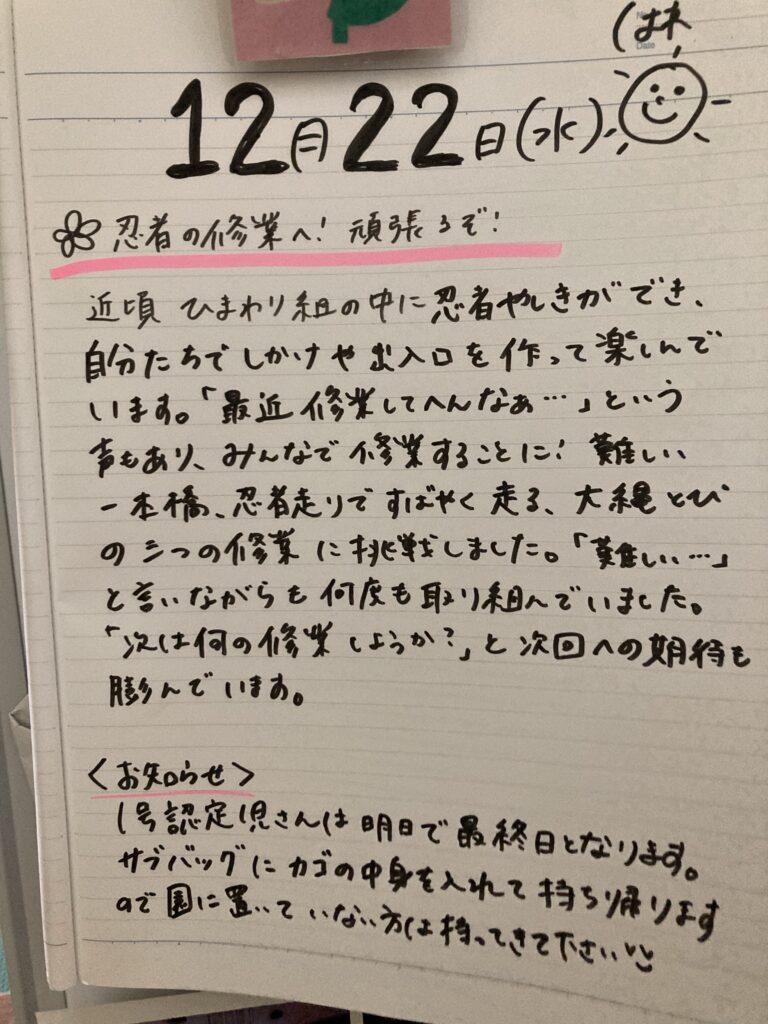 12月22日(水)
忍者の修業へ! 頑張るぞ!
近頃 ひまわり組の中に忍者やしきができ、
自分たちでしかけや出入口を作って楽しんで
います。「最近修業してへんなぁ…」という
声もあり、みんなで修業することに! 難しい
一本橋、忍者走りですばやく走る、大縄とび
の三つの修業に挑戦しました。「難しい…」
と言いながらも何度も取り組んでいました。
「次は何の修業しようか?」と次回への期待も
膨んでいます。
<お知らせ>
1号認定児さんは明日で最終日となります。
サブバッグにカゴの中身を入れて持ち帰ります
ので園に置いていない方は持ってきて下さい